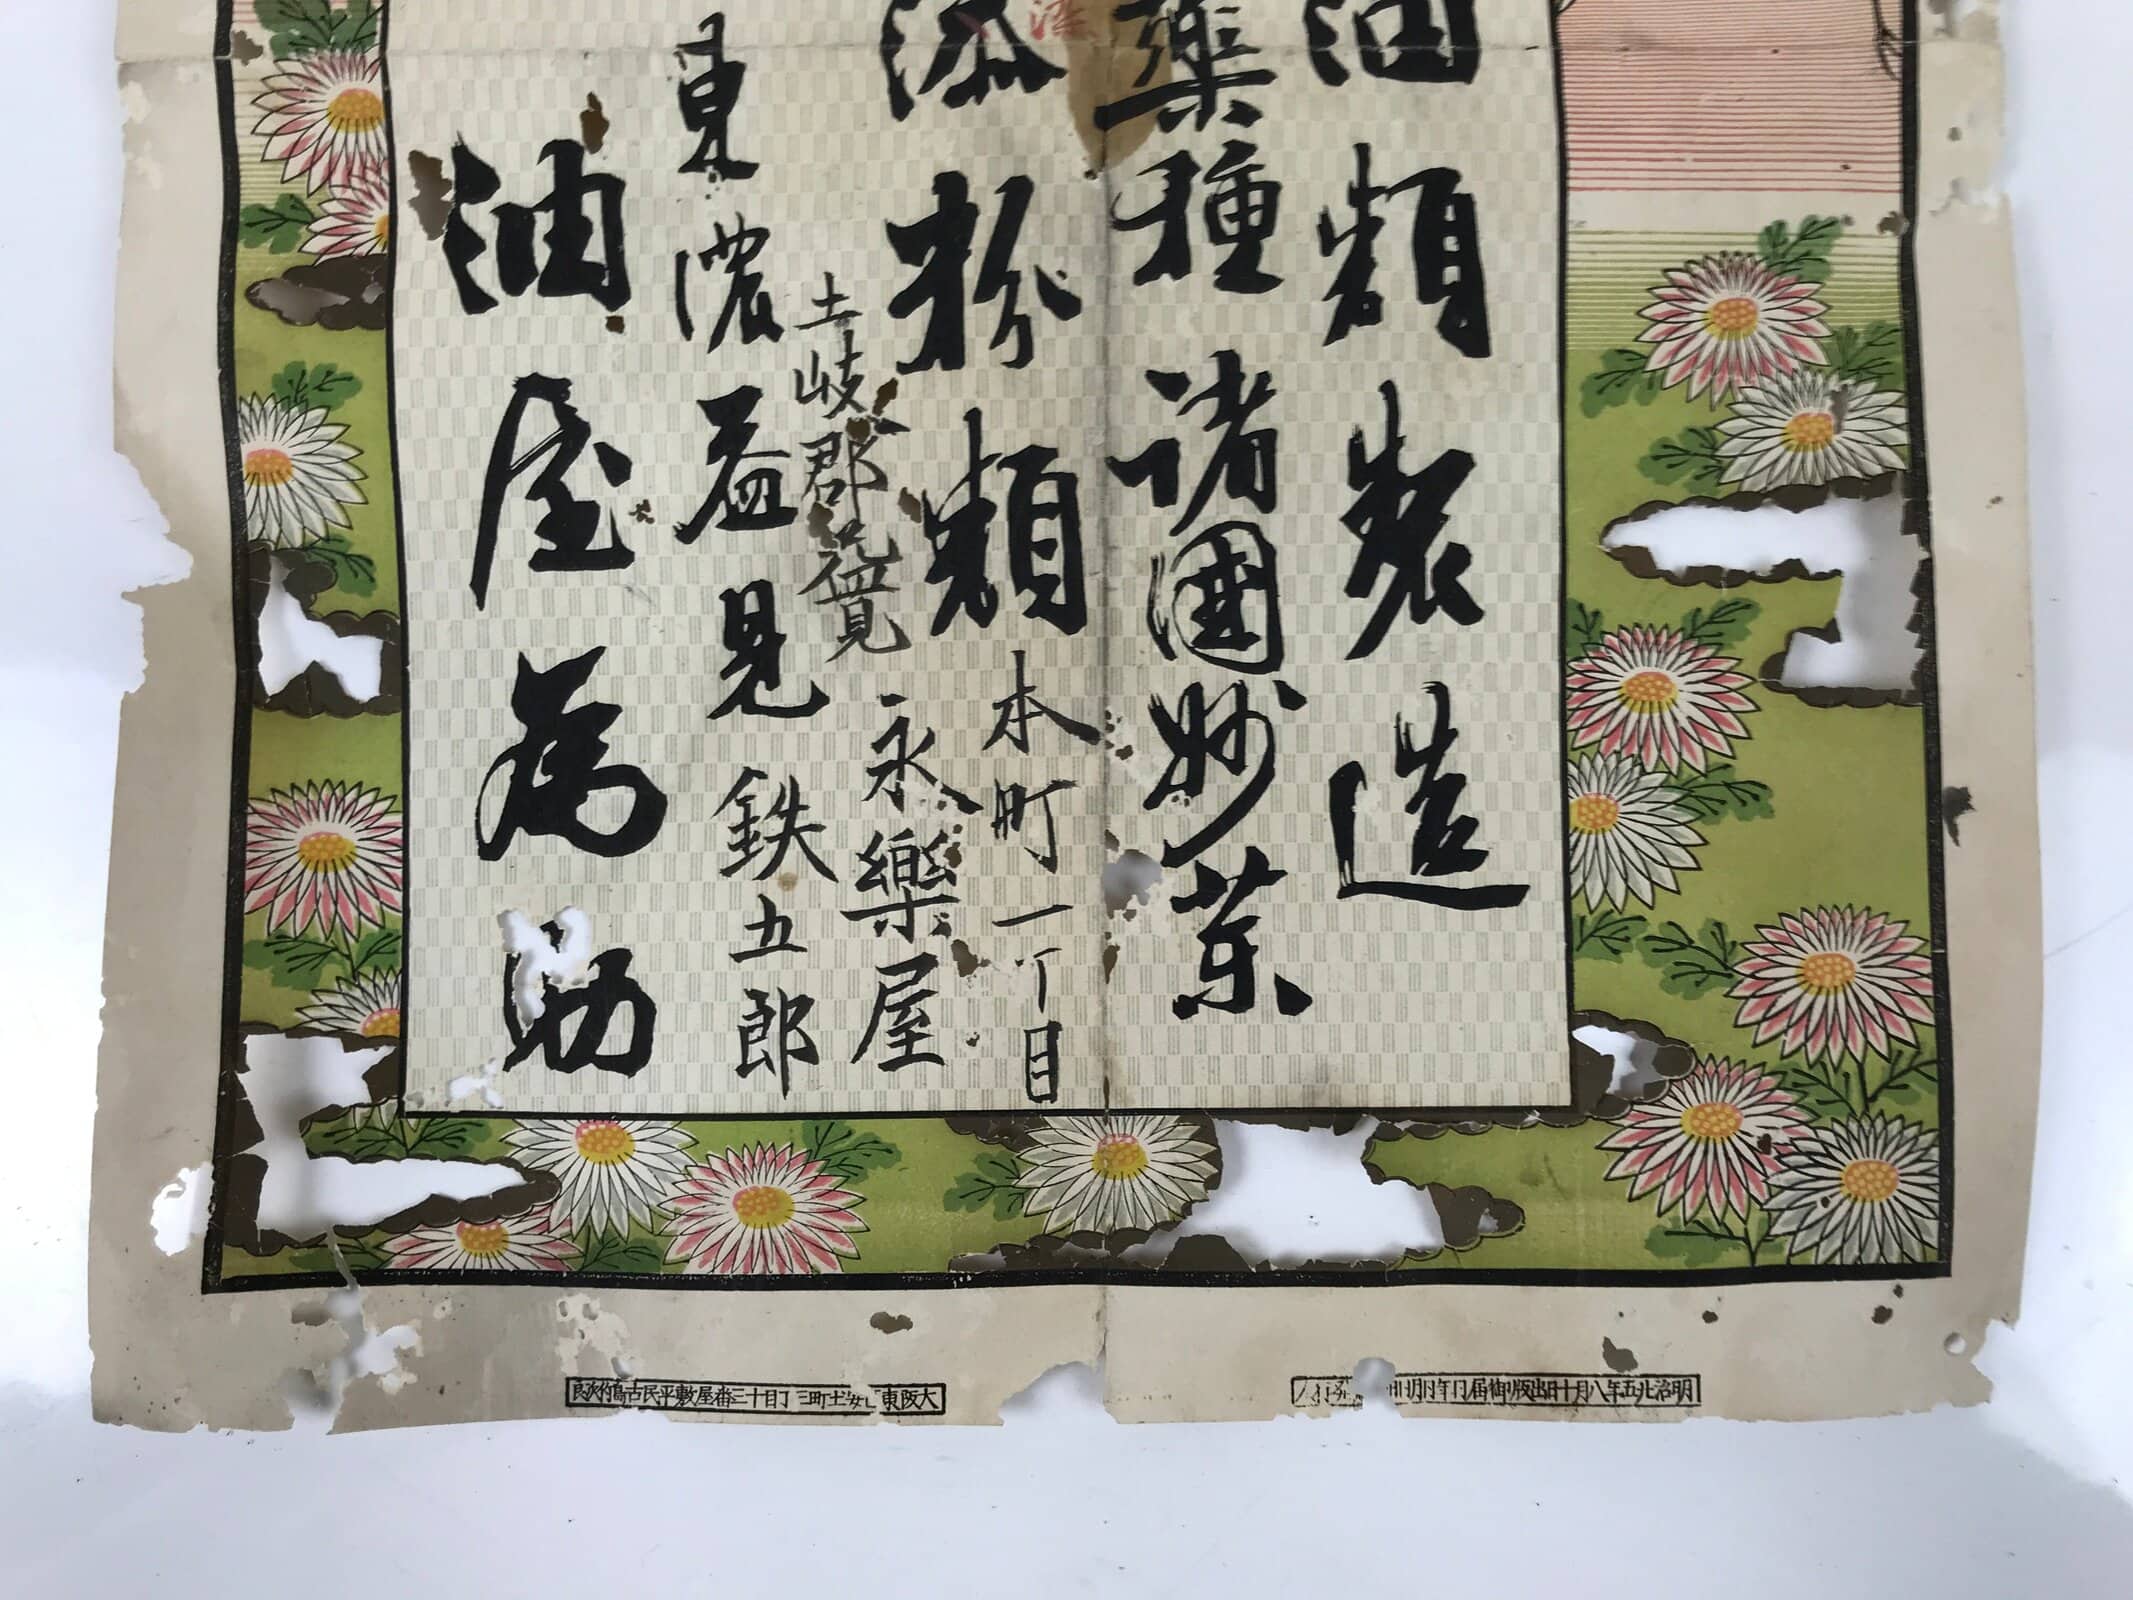 油類製造
薬種諸國妙薬
添粉類
本町一丁目
永樂屋
土岐郡
東濃益見鉄五郎
油屋為助
明治廿五年八月十日出版御届
大阪東
町三丁目十三番屋敷平民古島竹次良